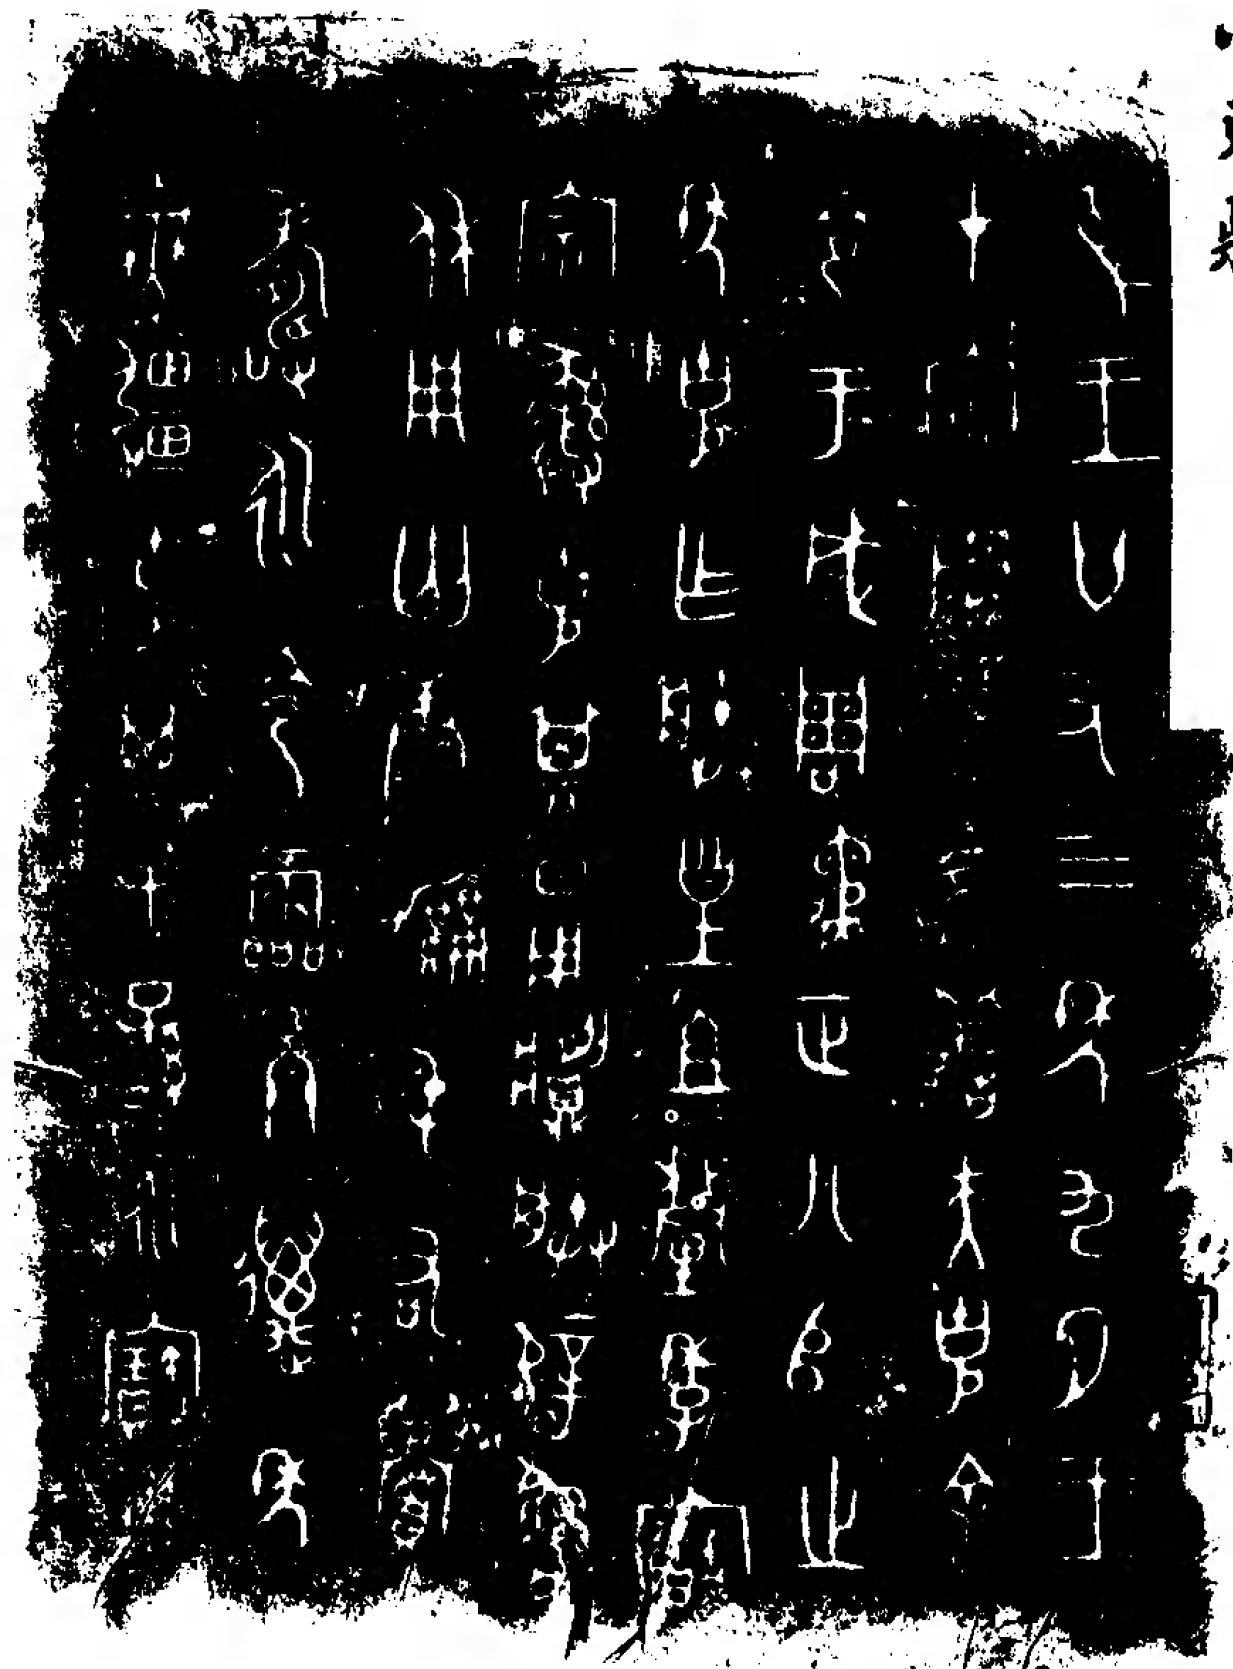 隹王廿又三年九月王
才宗周王命善夫克舍
令于成周遹正八𠂤之
年克乍朕皇且釐季寶
宗彝克其日用䵼朕辟魯
休用匄康勳屯右眉
壽永令霝冬萬年
無疆克其子子孫孫永寶用